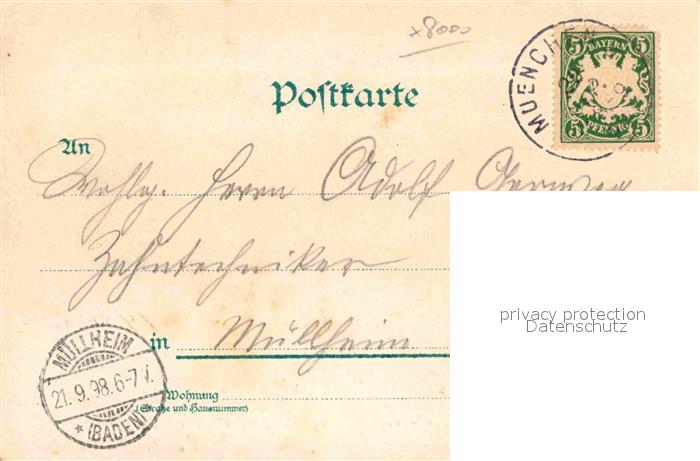 x8000
MUENCHEN
5 BAYERN 5
5 PFENNIG 5
Postkarte
An
Wohlg. Herrn Adolf
Zahntechniker
privacy protection
Datenschutz
in Müllheim
MÜLLHEIM
21. 9. 98. 6-7 V.
* (BADEN)
Wohnung
(Straße und Hausnummer)